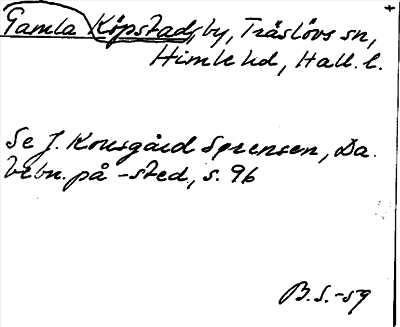 Gamla Köpstad, by, Träslövs sn,
Himle hd, Hall. l.
Se J. Kousgård Sørensen, Da.
bebn. på -sted, s. 96
B.S.-59